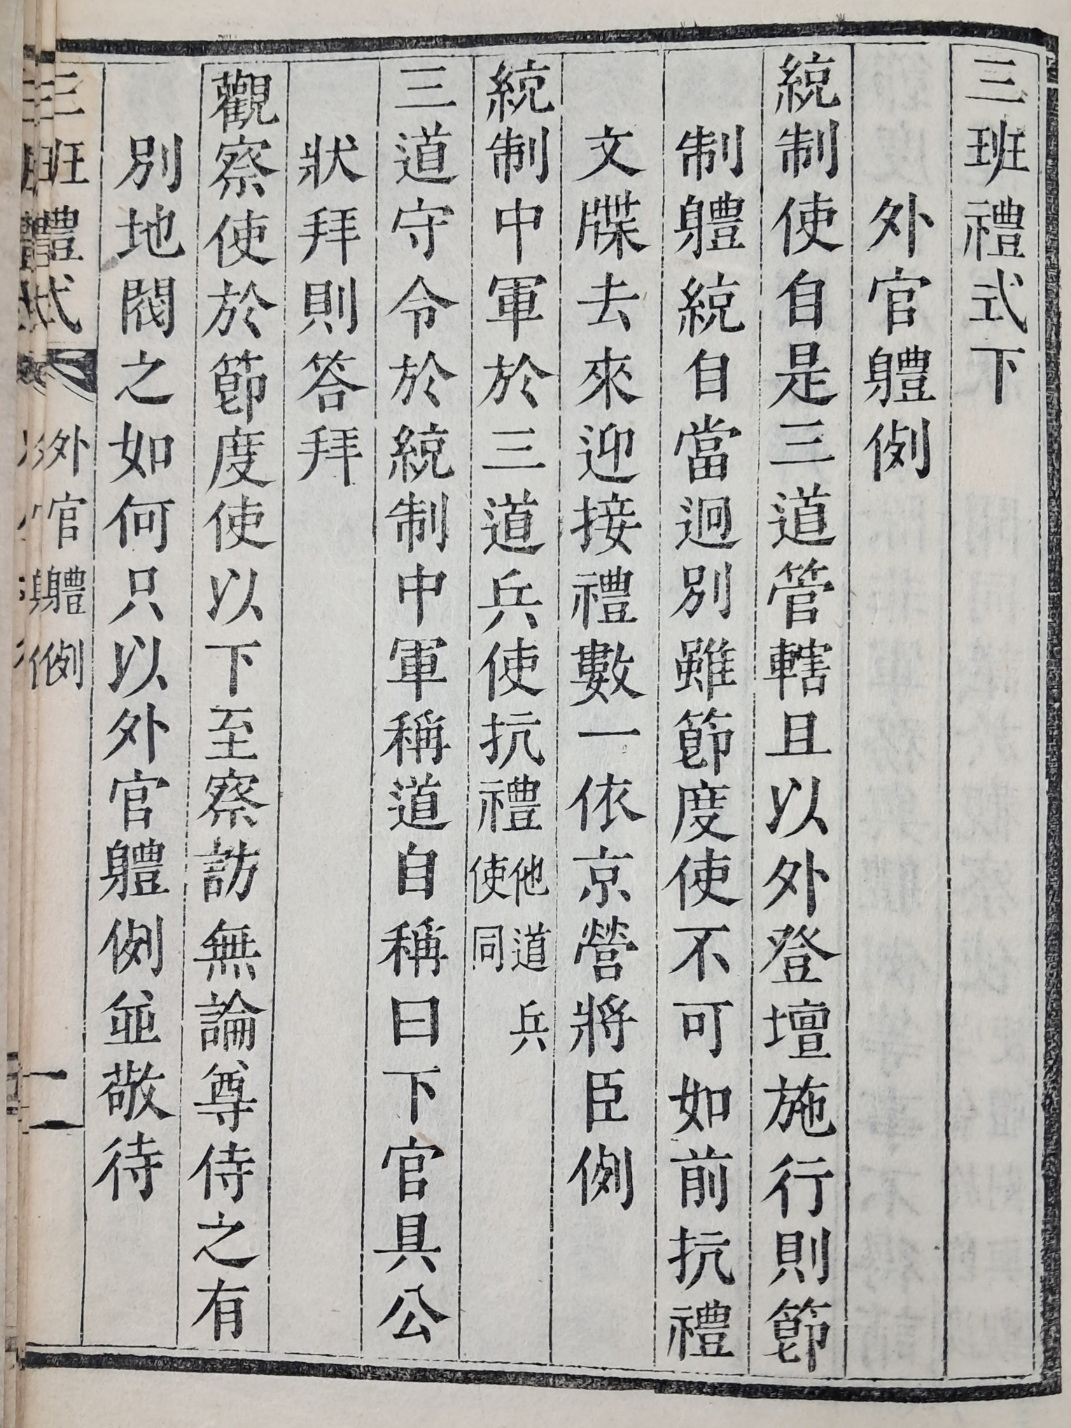 三班禮式下
外官軆例
統制使自是三道管轄且以外登壇施行則節
制軆統自當迥別雖節度使不可如前抗禮
文牒去來迎接禮數一依京營將臣例
統制中軍於三道兵使抗禮他道兵使同
三道守令於統制中軍稱道自稱曰下官具公
狀拜則答拜
觀察使於節度使以下至察訪無論尊侍之有
別地閥之如何只以外官軆例並敬待
三班軆式
外官軆例
一